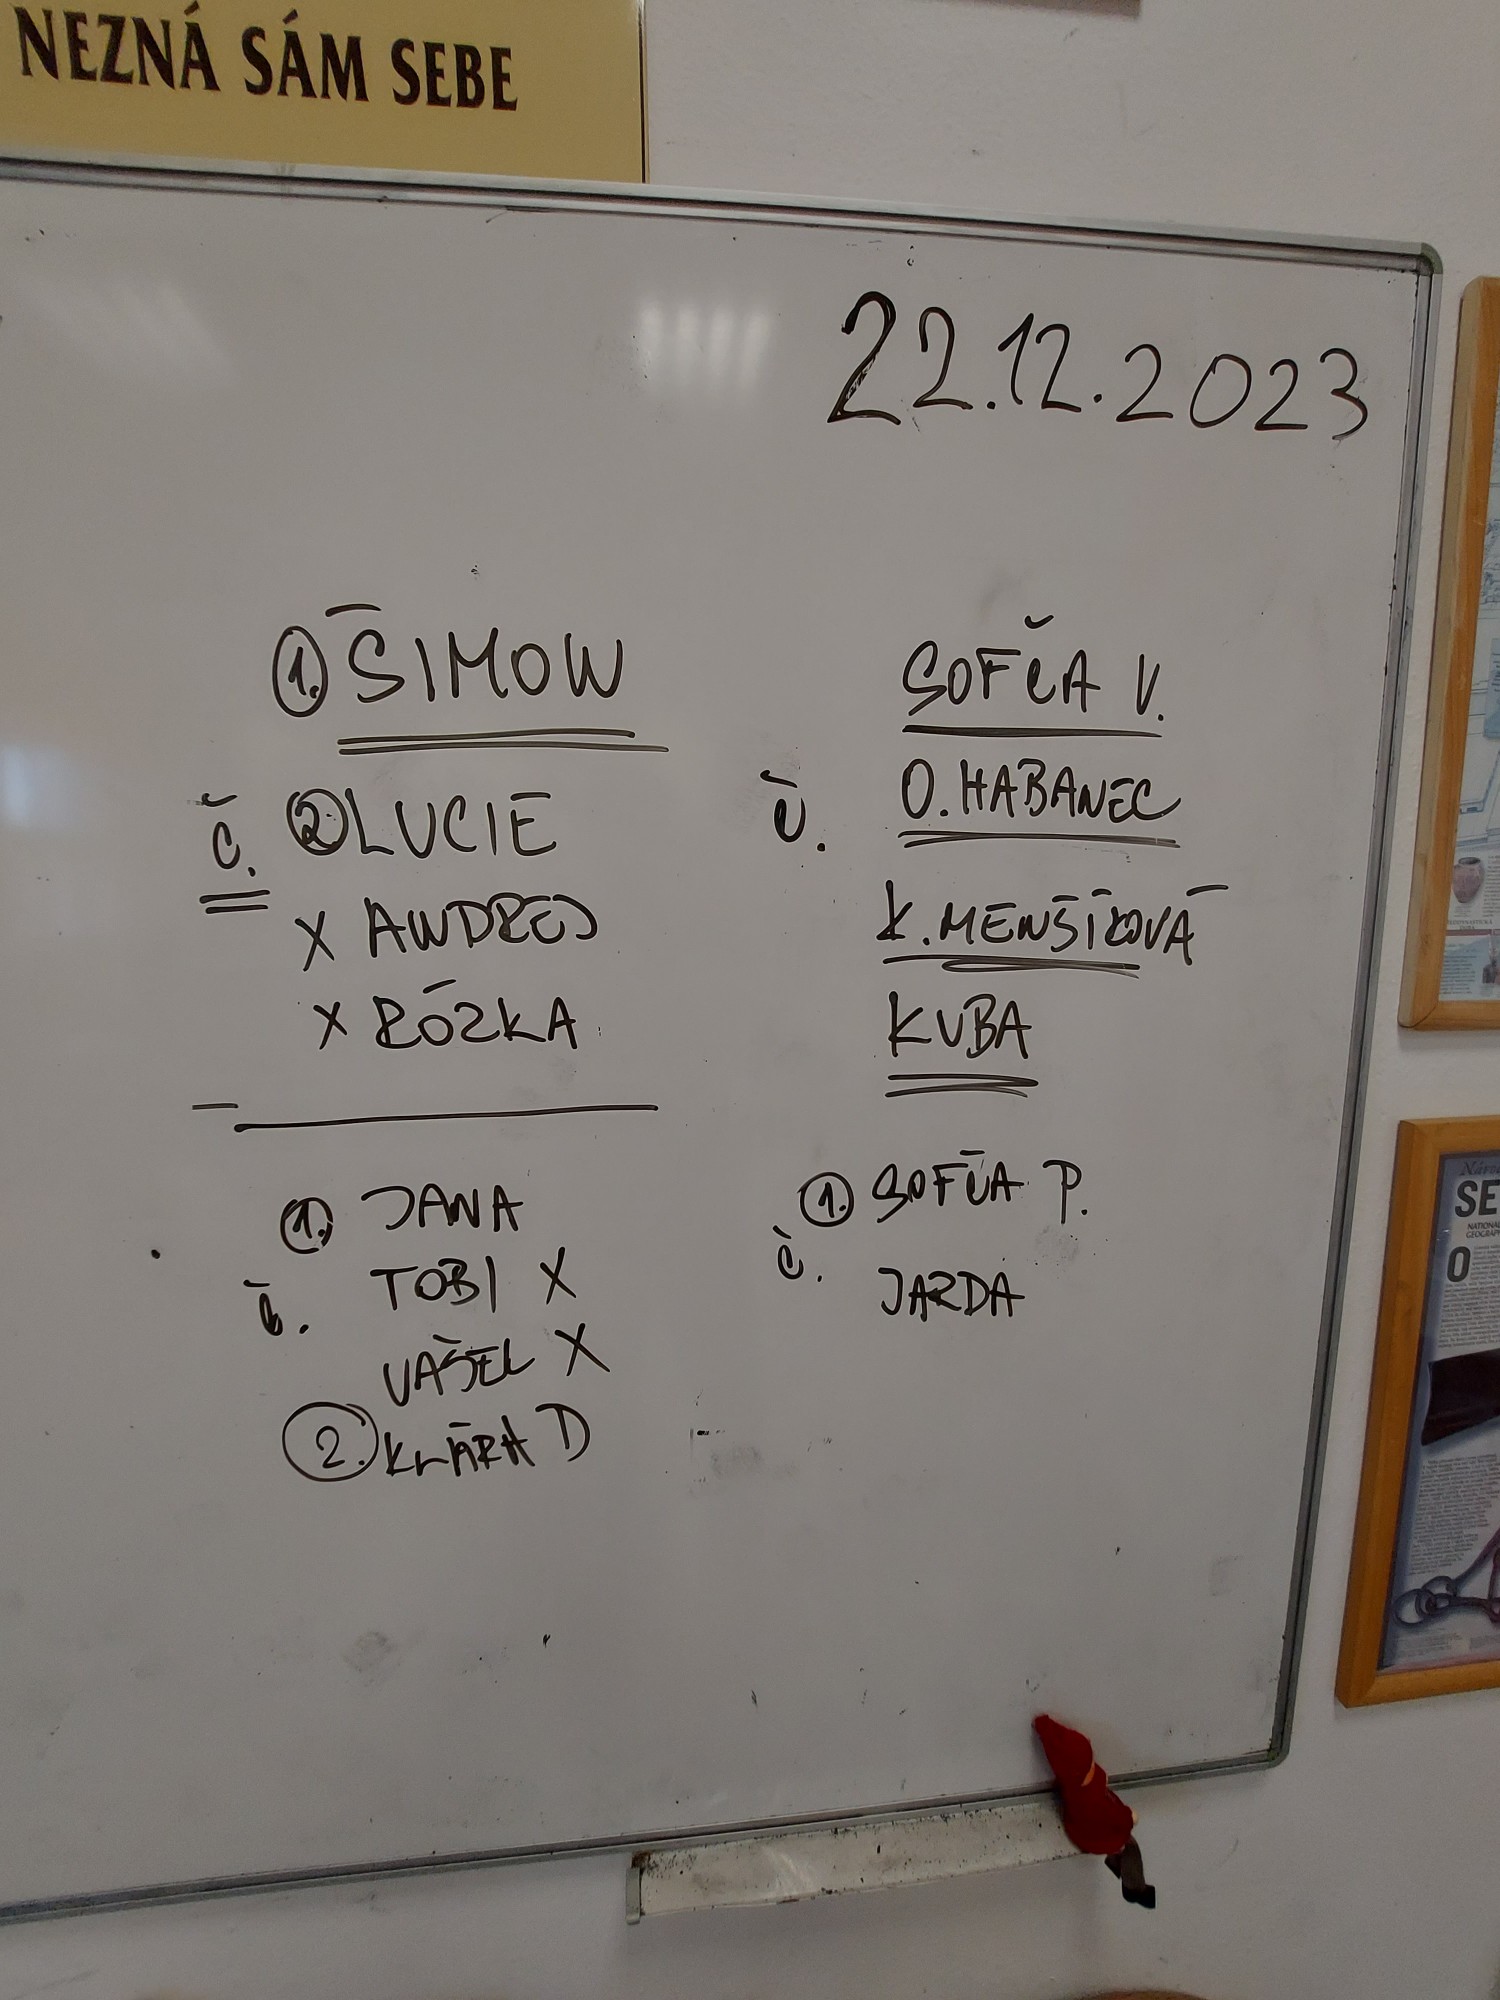 NEZNÁ SÁM SEBE
22.12.2023
1. ŠIMON
Č. 2. LUCIE
X ANDREJ
X RÓZKA
1. JANA
TOBI X
Č.
VAŠEK X
2. KLÁRA D
SOFČA V.
Č. O. HABANEC
K. MENŠÍKOVÁ
KUBA
1. SOFČA P.
Č. JARDA
SE
NATIONAL
O